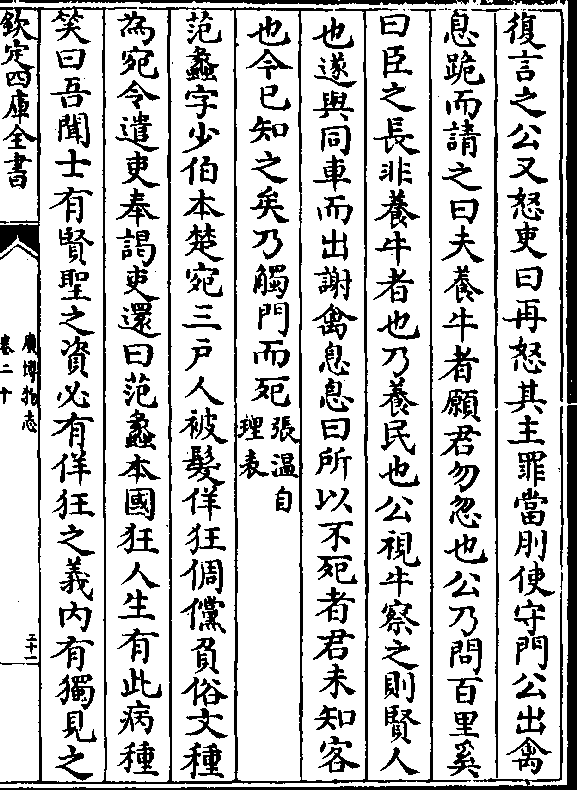 復言之公又怒吏曰再怒其主罪當刖使守門公出禽
息跪而請之曰夫養牛者願君勿忽也公乃問百里奚
曰臣之長非養牛者也乃養民也公視牛察之則賢人
也遂與同車而出謝禽息息曰所以不死者君未知客
也今已知之矣乃觸門而死張溫自理表
范蠡字少伯本楚宛三户人被髮佯狂倜儻負俗文種
為宛令遣吏奉謁吏還曰范蠡本國狂人生有此病種
笑曰吾聞士有賢聖之資必有佯狂之義内有獨見之
欽定四庫全書
廣博物志
卷二十
二十一